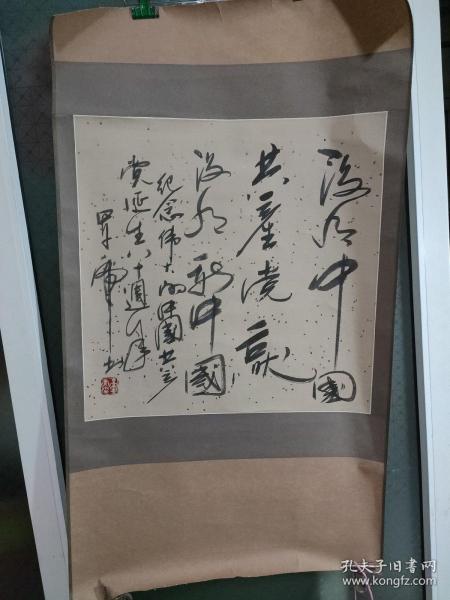 没有中國
共产党就
没有新中國
纪念伟大的中国共产
党诞生八十週年
孔夫子旧书网
www.kongfz.com